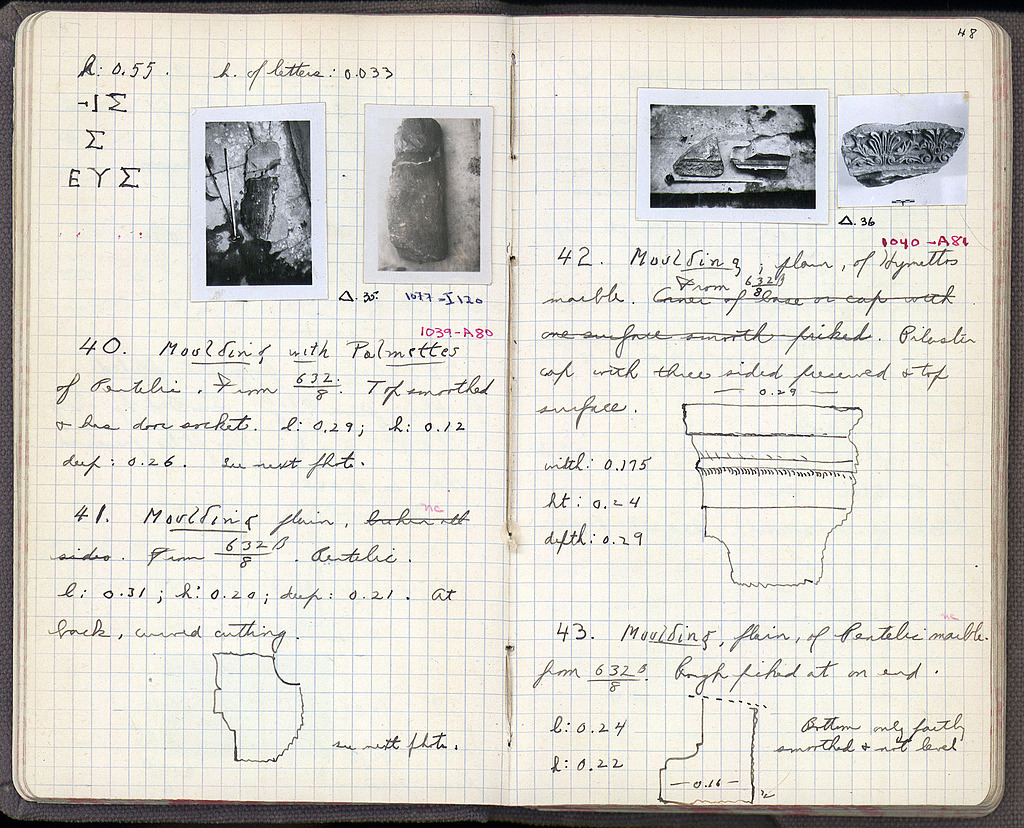 h: 0.55. h. of letters: 0.033
ΗΣ
Σ
ΕΥΣ
Δ. 35 1077-I120
1039-A80
40. Moulding with Palmettes
of Pentelic. From 632/8. Top smoothed
& has door socket. l: 0.29; h: 0.12
deep: 0.26. see next photo.
nc
41. Moulding plain, broken all
sides. From 632/8 B. Pentelic.
l: 0.31; h: 0.20; deep: 0.21. At
back, curved cutting.
see next photo.
48
Δ. 36
1040-A81
42. Moulding, plain, of Hymettos
From 632/8 B
marble. Corner of base or cap with
one surface smooth picked. Pilaster
cap with three sided preserved & top
surface.
0.29
width: 0.175
ht: 0.24
depth: 0.29
nc
43. Moulding, plain, of Pentelic marble.
from 632/8 B. Rough picked at on end.
l: 0.24
h: 0.22
Bottom only partly
smoothed & not level
0.16